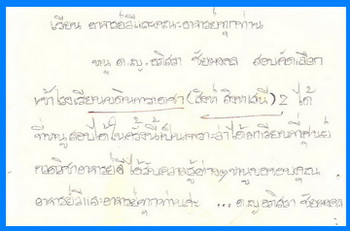 เรียน อาจารย์ลีและคณะอาจารย์ทุกท่าน
หนู ด.ญ. อภิสรา ชัยมงคล สอบคัดเลือก
เข้าโรงเรียนบดินทรเดชา (สิงห์ สิงหเสนี) 2 ได้
ที่หนูสอบได้ในครั้งนี้เป็นเพราะว่าได้มาเรียนที่ศูนย์
อาจารย์ลี ได้รับความรู้ต่างๆ หนูขอขอบคุณ
อาจารย์ลีและอาจารย์ทุกท่านค่ะ ... ด.ญ. อภิสรา ชัยมงคล